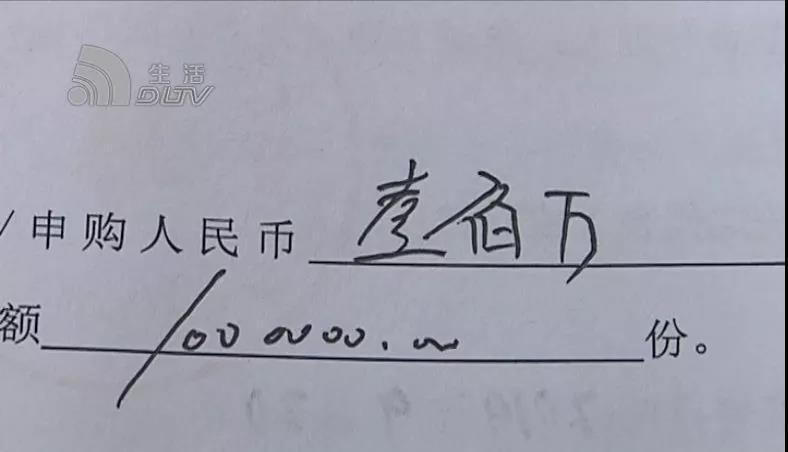 生活
DLTV
/申购人民币 壹佰万
额 1000000.00 份。